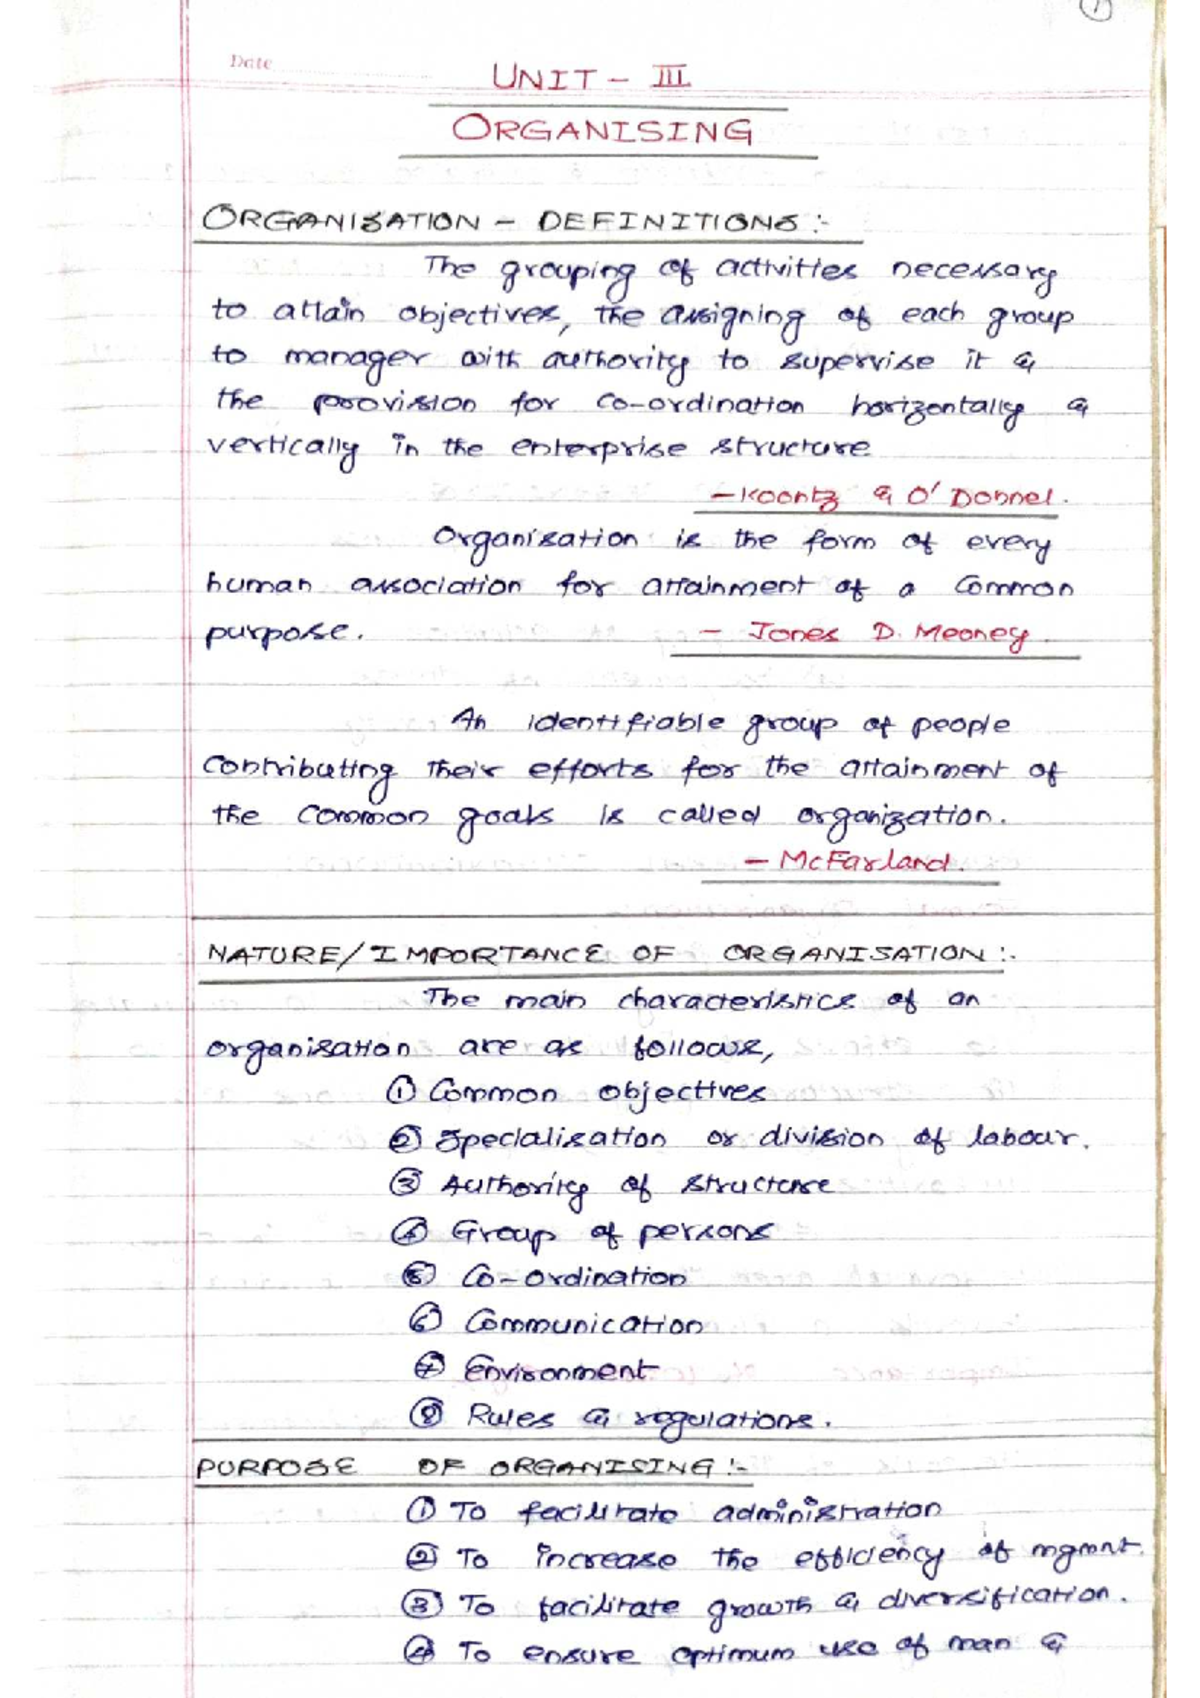 1
Date
UNIT - III
ORGANISING
ORGANISATION - DEFINITIONS :-
The grouping of activities necessary
to attain objectives, the assigning of each group
to manager with authority to supervise it &
the provision for co-ordination horizontally &
vertically in the enterprise structure
- Koontz & O' Donnel.
Organisation is the form of every
human association for attainment of a common
purpose. - Jones D. Mooney
An identifiable group of people
contributing their efforts for the attainment of
the common goals is called organization.
- McFarland.
NATURE/IMPORTANCE OF ORGANISATION :-
The main characteristics of an
organisation are as follows,
① Common objectives
② Specialisation or division of labour.
③ Authority of structure
④ Group of persons
⑤ Co-ordination
⑥ Communication
⑦ Environment
⑧ Rules & regulations.
PURPOSE OF ORGANISING :-
① To facilitate administration
② To increase the efficiency of mgmnt.
③ To facilitate growth & diversification.
④ To ensure optimum use of man &